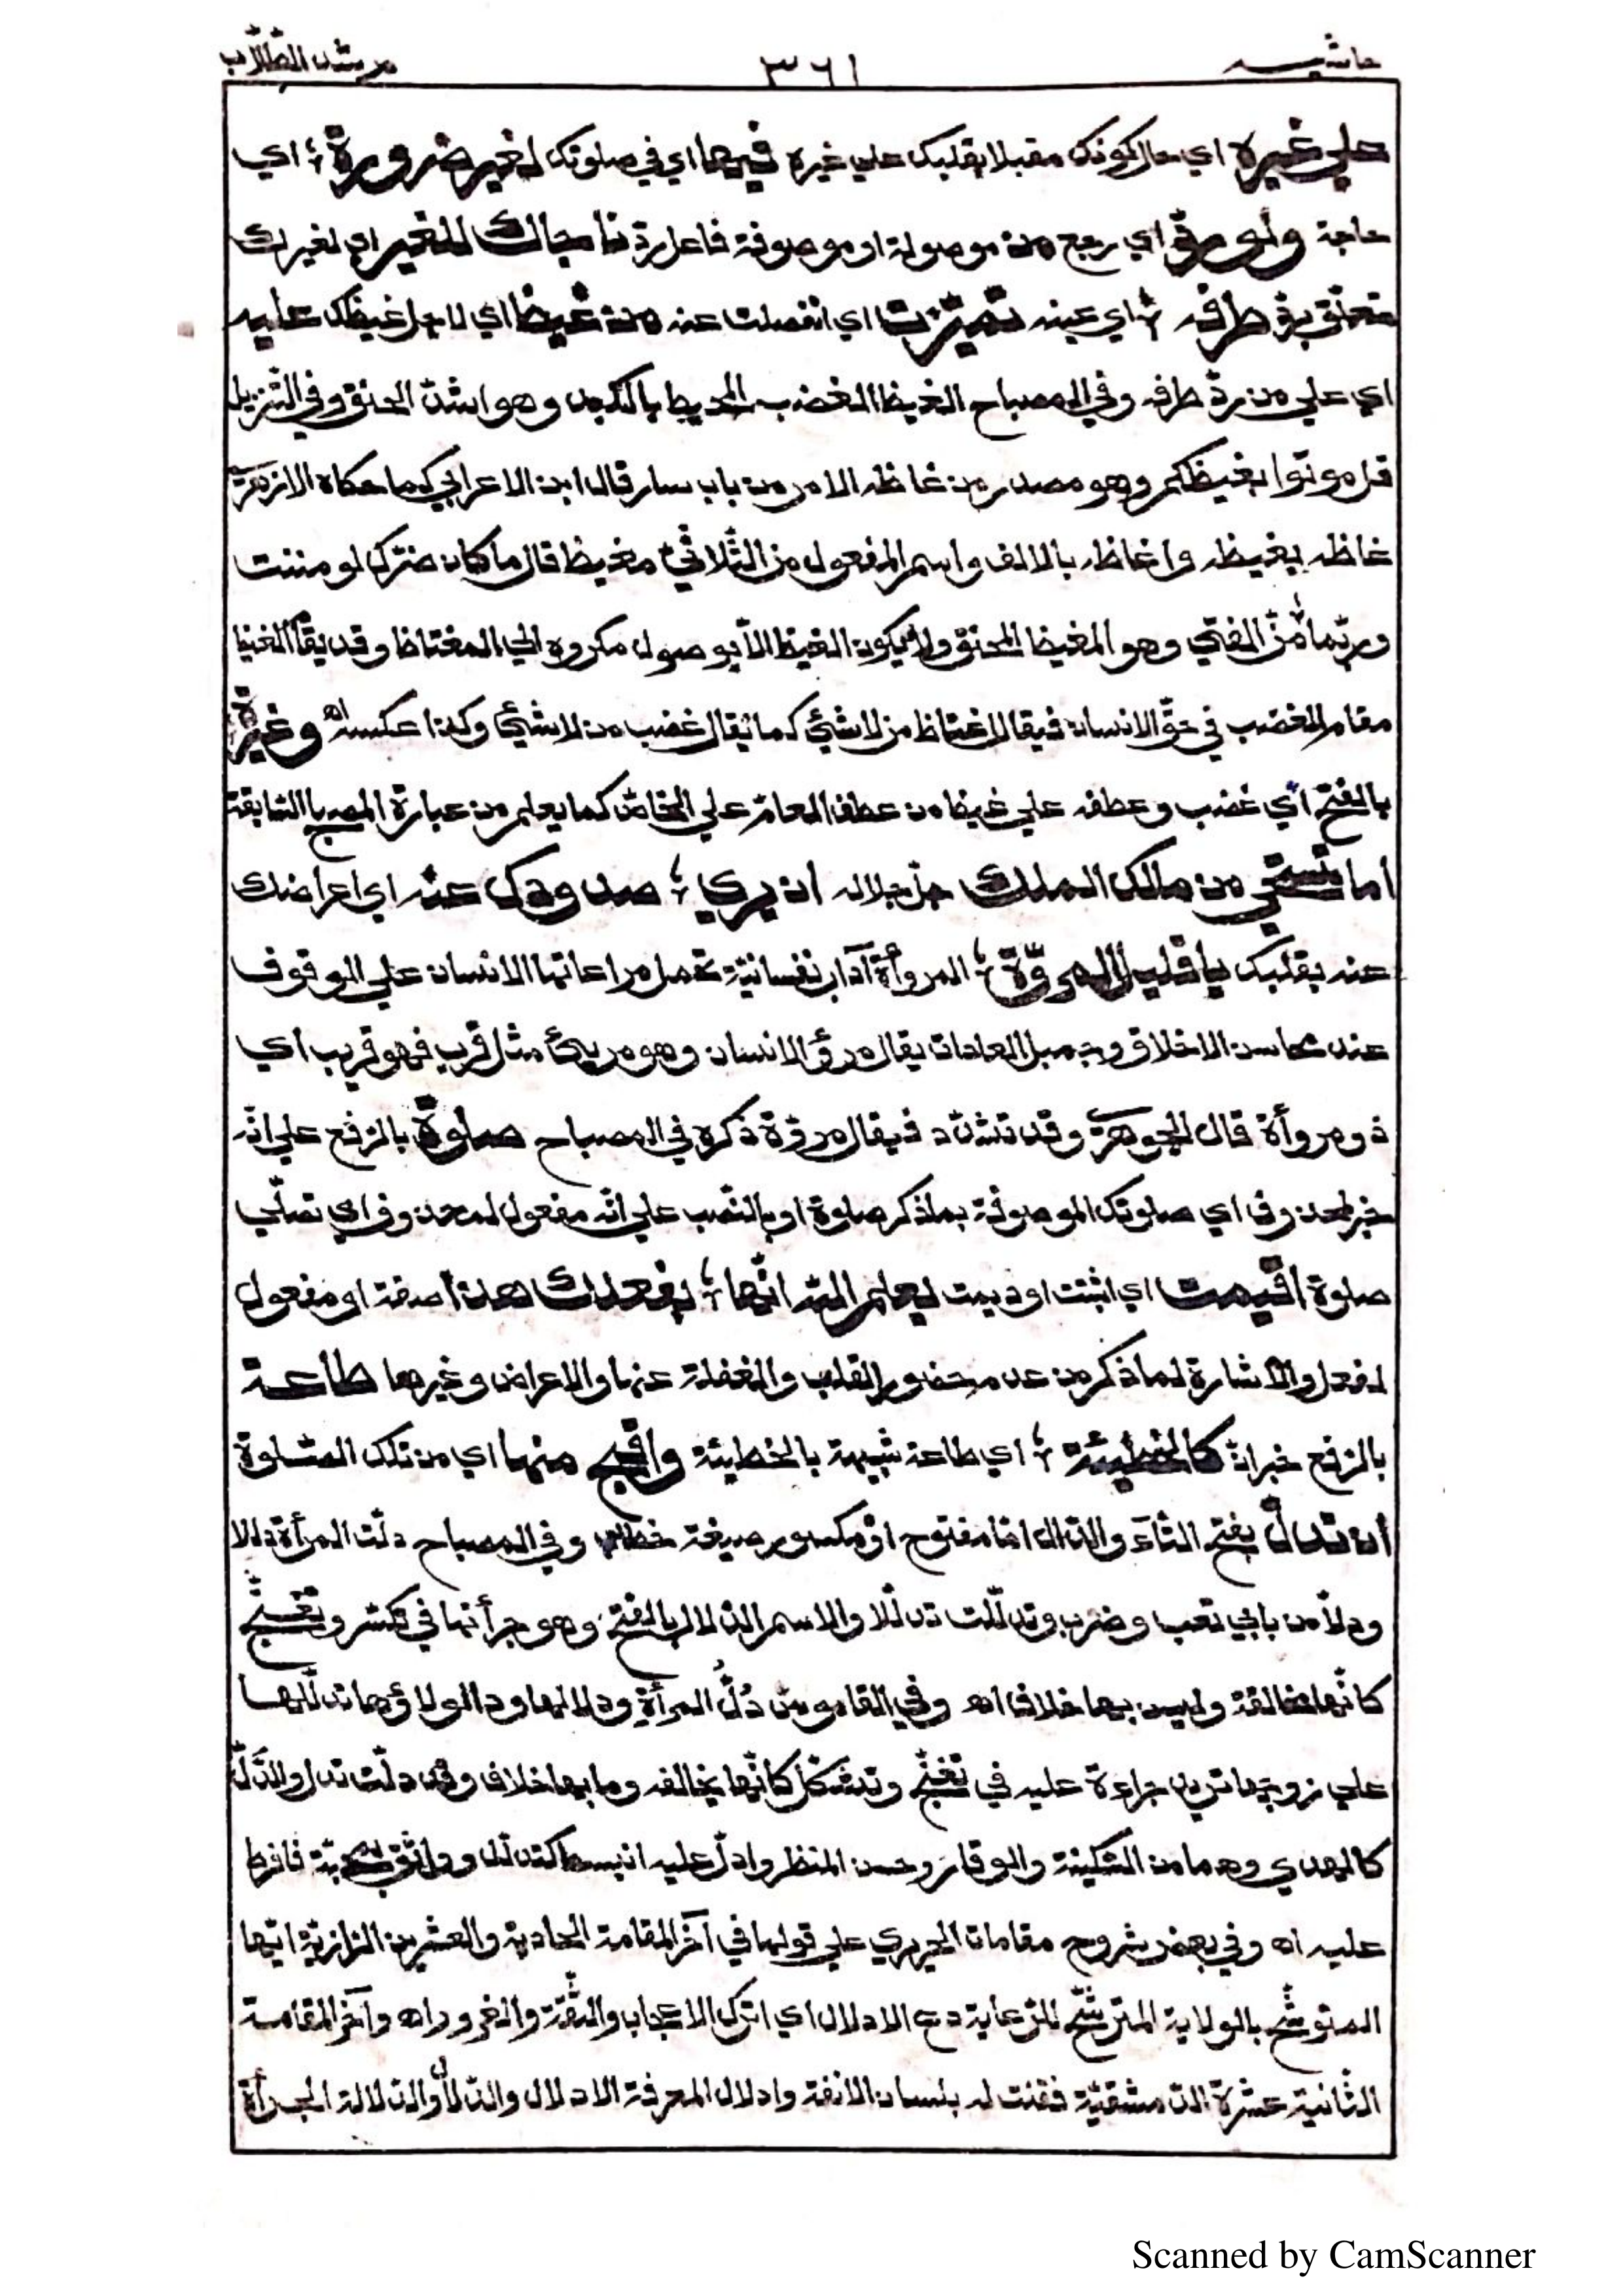 حاشيـــه ٣٦١ مرشد الطّلّاب
علي غيره اي حال كونك مقبلا بقلبك علي غيره فيها اي في صلوتك لغير ضرورة ؛ اي
حاجة ولو ردّ اي رجع من موصولة او موصوفة فاعل ردّ ناجاك للغير اي لغيرك
متعلّق بردّ طرفه ؛ اي عينه تميّزت اي انفصلت عنه من غيظ اي لاجل غيظك عليه
اي علي من ردّ طرفه وفي المصباح الغيظ الغضب المحيط بالكبد وهو اشدّ الحنق وفي التّنزيل
قل موتوا بغيظكم وهو مصدر من غاظه الامر من باب سار قال ابن الاعرابي كما حكاه الازهريّ
غاظه يغيظه واغاظه بالالف واسم المفعول من الثّلاثيّ مغيظ قال ما كان ضرّك لو مننت
وربّما منّ الفتي وهو المغيظ المحنق ولا يكون الغيظ الّا بوصول مكروه الي المغتاظ وقد يقام الغيظ
مقام الغضب في حقّ الانسان فيقال اغتاظ من لا شئ كما يقال غضب من لا شئ وكذا عكسه اه وغيرة
بالفتح اي غضب وعطفه علي غيظ من عطف العامّ علي الخاصّ كما يعلم من عبارة المصباح السّابقة
أما تستحي من مالك الملك جلّ جلاله ان يري ؛ صدودك عنه اي اعراضك
عنه بقلبك يا قليل المروّة ؛ المروأة آداب نفسانيّة تحمل مراعاتها الانسان علي الوقوف
عند محاسن الاخلاق وجميل العادات يقال مرؤ الانسان وهو مريئ مثل قرب فهو قريب اي
ذو مروأة قال الجوهريّ وقد تشدّد فيقال مروّة ذكره في المصباح صلوة بالرّفع علي انّه
خبر لمحذوف اي صلوتك الموصوفة بما ذكر صلوة او بالنّصب علي انّه مفعول لمحذوف اي تصلّي
صلوة اقيمت اي اثبتت او ديمت يعلم اللّه انّها ؛ بفعلك هذا صفة او مفعول
لفعل والاشارة لما ذكر من عدم حضور القلب والغفلة عنها والاعراض وغيرها طاعة
بالرّفع خبر انّ كالخطيئة ؛ اي طاعة شبيهة بالخطيئة واقبح منها اي من تلك الصّلوة
أن تدلّ بفتح التّاء والدّال امّا مفتوح او مكسور صيغة خطاب وفي المصباح دلّت المرأة دلالا
ودلّا من بابي تعب وضرب وتدلّلت تدلّلا والاسم الدّلال بالفتح وهو جرأتها في تكسّر وتغنّج
كانّها مخالفة وليس بها خلاف اه وفي القاموس دَلُّ المرأةِ ودلالها ودالولاؤها تدلّلها
علي زوجها تريه جراءة عليه في تغنّج وتشكّل كانّها تخالفه وما بها خلاف وقد دلّت تدلّ والدَّلّ
كالهدي وهما من السّكينة والوقار وحسن المنظر وادلّ عليه انبسط كتدلّل وواثق بمحبّته فافرط
عليه اه وفي بعض شروح مقامات الحريري علي قولها في آخر المقامة الحادية والعشرين الرّازيّة ايّها
المتوشّح بالولاية المترشّح للرّعاية دع الادلال اي اترك الاعجاب والثّقة والغرور اه وآخر المقامة
الثّانية عشرة الدّمشقيّة فقنت له بلسان الانفة وادلال المعرفة الادلال والدّلّ والدّلالة الجرأة
Scanned by CamScanner